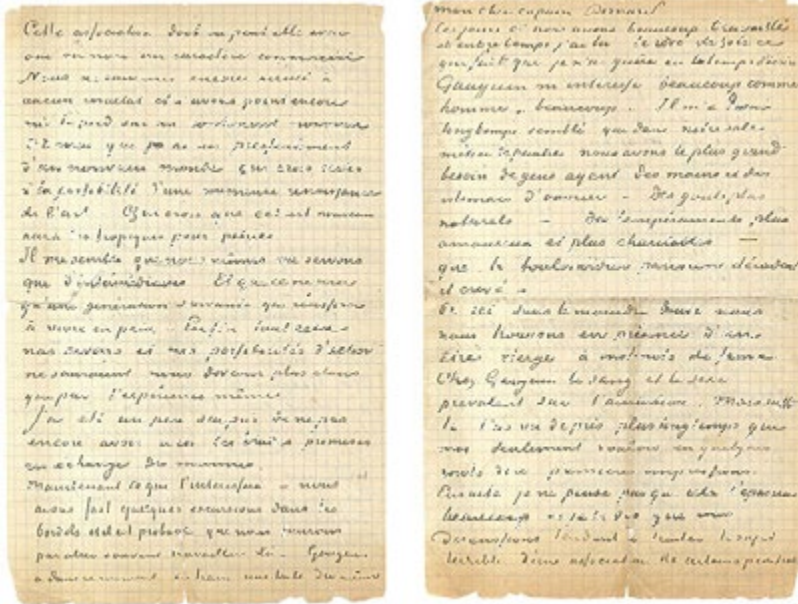 Cette association dont
ou non un caractère commercial
Nous ne sommes encore arrivé à
aucun résultat et n'avons point encore
mis le pied sur un continent nouveau
d'un nouveau monde qui crois
à la possibilité d'une immense renaissance
de l'art. Qui crois que cet art nouveau
aura les tropiques pour patrie.
Il me semble que nous mêmes ne servons
que d'intermédiaires. Et que ce ne sera
qu'une génération suivante qui réussira
à vivre en paix. Enfin tout cela
nos devoirs et nos possibilités d'action
ne sauraient nous devenir plus clairs
que par l'expérience même.
J'ai été un peu surpris de ne pas
encore avoir reçu les études promises
en échange des miennes.
Maintenant ce qui t'intéressera nous
avons fait quelques excursions dans les
bordels et il est probable que nous
souvent travailler là. Gauguin
a dans ce moment en train une toile du même
mon cher copain Bernard
ces jours ci nous avons beaucoup travaillé
et entretemps j'ai lu le rêve de Zola ce
qui fait que je n'ai guère eu le temps d'écrire
Gauguin m'intéresse beaucoup comme
homme, beaucoup. Il m'a depuis
longtemps semblé que dans notre sale
métier de peintre nous avons le plus grand
besoin de gens ayant des mains et des
estomacs d'ouvrier - Des goûts plus
naturels - Des tempéraments plus
amoureux et plus charitables -
que le boulevardier parisien décadent
et crevé.
Or ici sans le moindre doute nous
nous trouvons en présence d'un
être vierge à instincts de
Chez Gauguin le sang et le sexe
prevalent sur l'ambition. Mais
tu l'as vu de près plus longtemps que
moi seulement voulais en quelques
mots dire premières impressions.
Ensuite je ne pense pas que cela t'épatera
beaucoup si je te dis que nos
Discussions tendent à traiter le sujet
terrible d'une association de certains peintres